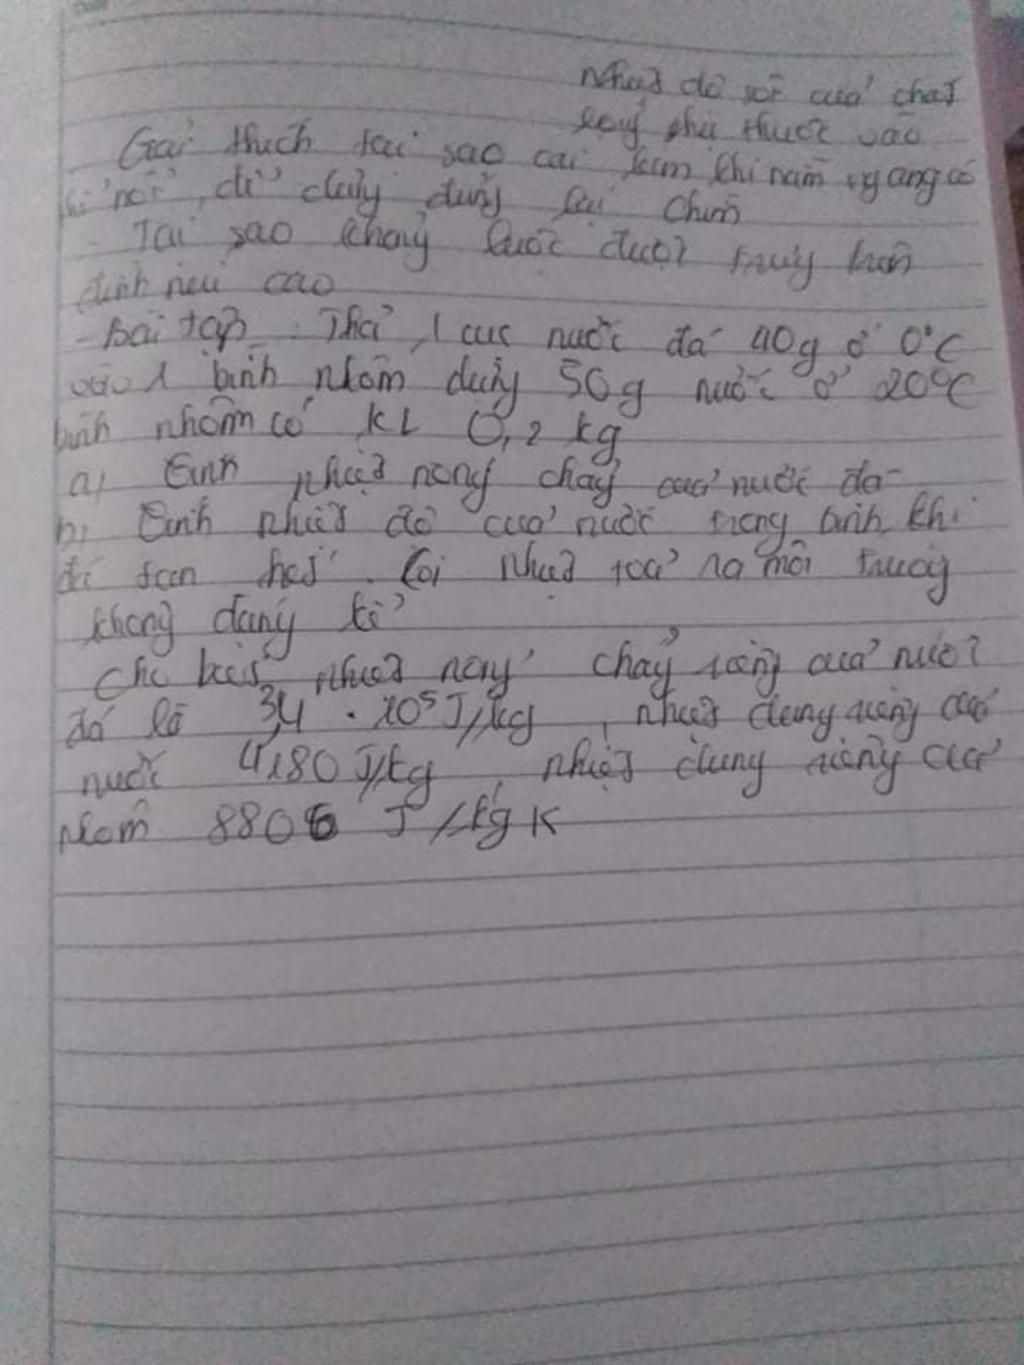 Nhiệt độ sôi của chất
lỏng phụ thuộc vào
Giải thích tại sao cái kim khi nằm ngang có
nổi, để dựng đứng lại chìm
- Tại sao không luộc được trứng trên
đỉnh núi cao
- Bài tập. Thả 1 cục nước đá 40g ở 0°C
vào 1 bình nhôm đựng 50g nước ở 20°C
bình nhôm có KL 0,2 kg
a, Tính nhiệt nóng chảy của nước đá
b, Tính nhiệt độ của nước trong bình khi
đá tan hết. Coi nhiệt toả ra môi trường
không đáng kể
Cho biết nhiệt nóng chảy riêng của nước
đá là 3,4 . 10⁵ J/kg, nhiệt dung riêng của
nước 4180 J/kg, nhiệt dung riêng của
nhôm 880 J/kg K